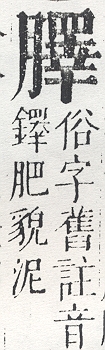 臎
俗字舊註音
鐸肥貌泥